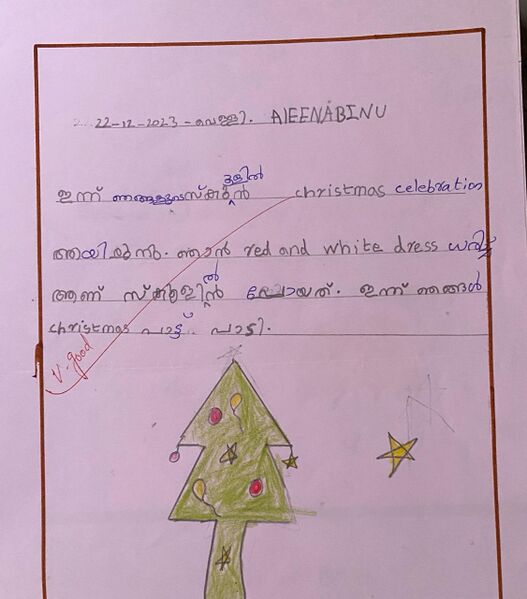 22-12-2023 - വെള്ളി. AlEENABINU
ളിൽ
ഇന്ന് ഞങ്ങളുടെ സ്കൂ christmas celebration
ആയിരുന്നു. ഞാൻ red and white dress ധരിച്ച്
ആണ് സ്കൂളിൽ പോയത്. ഇന്ന് ഞങ്ങൾ
christmas പാട്ട് പാടി.
v. good